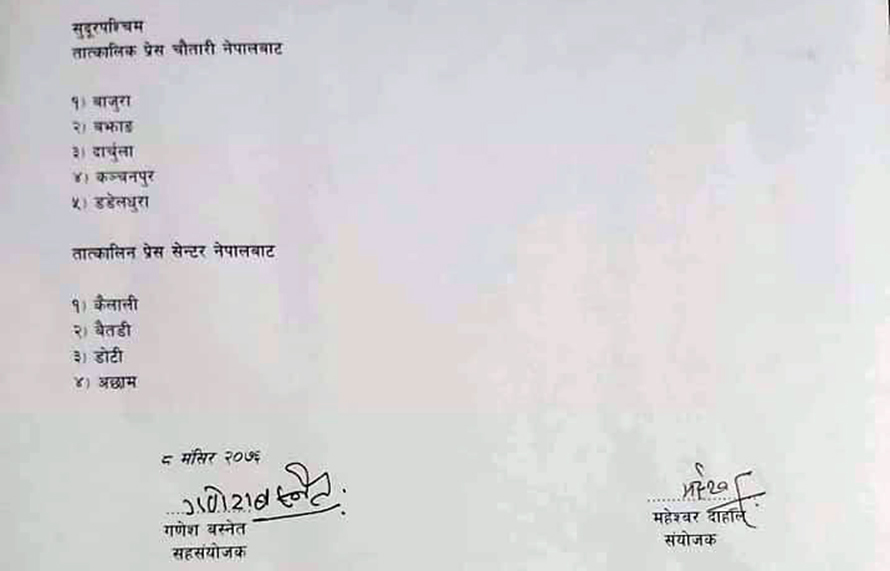 सुदूरपश्चिम
तात्कालिक प्रेस चौतारी नेपालबाट
१) बाजुरा
२) बझाङ
३) दार्चुला
४) कञ्चनपुर
५) डडेलधुरा
तात्कालिन प्रेस सेन्टर नेपालबाट
१) कैलाली
२) बैतडी
३) डोटी
४) अछाम
८ मंसिर २०७६
गणेश बस्नेत
गणेश बस्नेत
सहसंयोजक
महेश्वर दाहाल
संयोजक